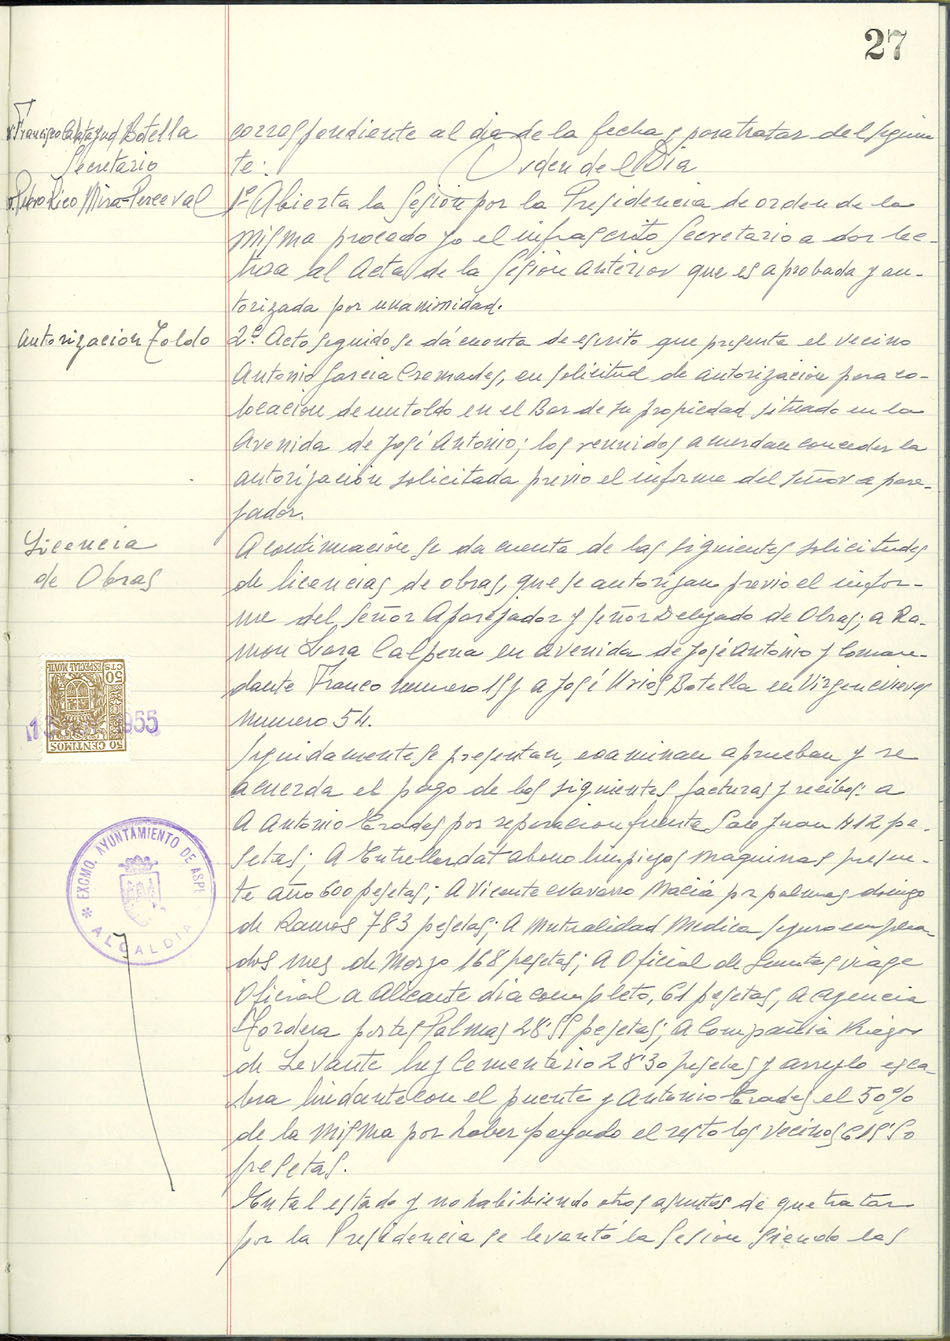 27
Francisco Calatayud Botella
Secretario
Pedro Rico Mira-Perceval
correspondiente al dia de la fecha y para tratar del siguien
te: Orden del Dia
1º Abierta la Sesión por la Presidencia de orden de la
misma procedo yo el infrascrito Secretario a dar lec-
tura al Acta de la Sesión anterior que es aprobada y au-
torizada por unanimidad.
Autorización Toldo
2º Acto seguido se dá cuenta de escrito que presenta el vecino
Antonio Garcia Cremades, en solicitud de autorización para co-
locación de un toldo en el Bar de su propiedad situado en la
Avenida de José Antonio; los reunidos acuerdan conceder la
autorización solicitada previo el informe del señor apare-
jador.
Licencia
de Obras
A continuación se da cuenta de las siguientes solicitudes
de licencias de obras, que se autorizan previo el infor-
me del Señor Aparejador y Señor Delegado de Obras; a Ra-
mon Lara Calpena en avenida de José Antonio y Coman-
dante Franco numero y a José Urios Botella en Virgen Nieves
numero 54.
Seguidamente se presentan, examinan aprueban y se
acuerda el pago de los siguientes facturas y recibos: a
A Antonio Erades por reparacion fuente San Juan 412 pe-
setas; A abono limpiezas maquinas presen-
te año 600 pesetas; A Vicente Navarro Macia por palmas domingo
de Ramos 783 pesetas; A Mutualidad Medica Seguro emplea
dos mes de Marzo 168 pesetas; A Oficial de viage
Oficial a Alicante dia completo, 61 pesetas, a agencia
portes Palmas 28'55 pesetas; A Compañia Riegos
de Levante luz Cementerio 28'30 pesetas y arreglo
lindante con el puente y Antonio Erades el 50%
de la misma por haber pagado el resto los vecinos
pesetas.
En tal estado y no habibiendo otros asuntos de que tratar
por la Presidencia se levantó la Sesión siendo las
50 CENTIMOS
ESPECIAL MOVIL
50 CTS
1955
EXCMO. AYUNTAMIENTO DE ASPE
ALCALDIA